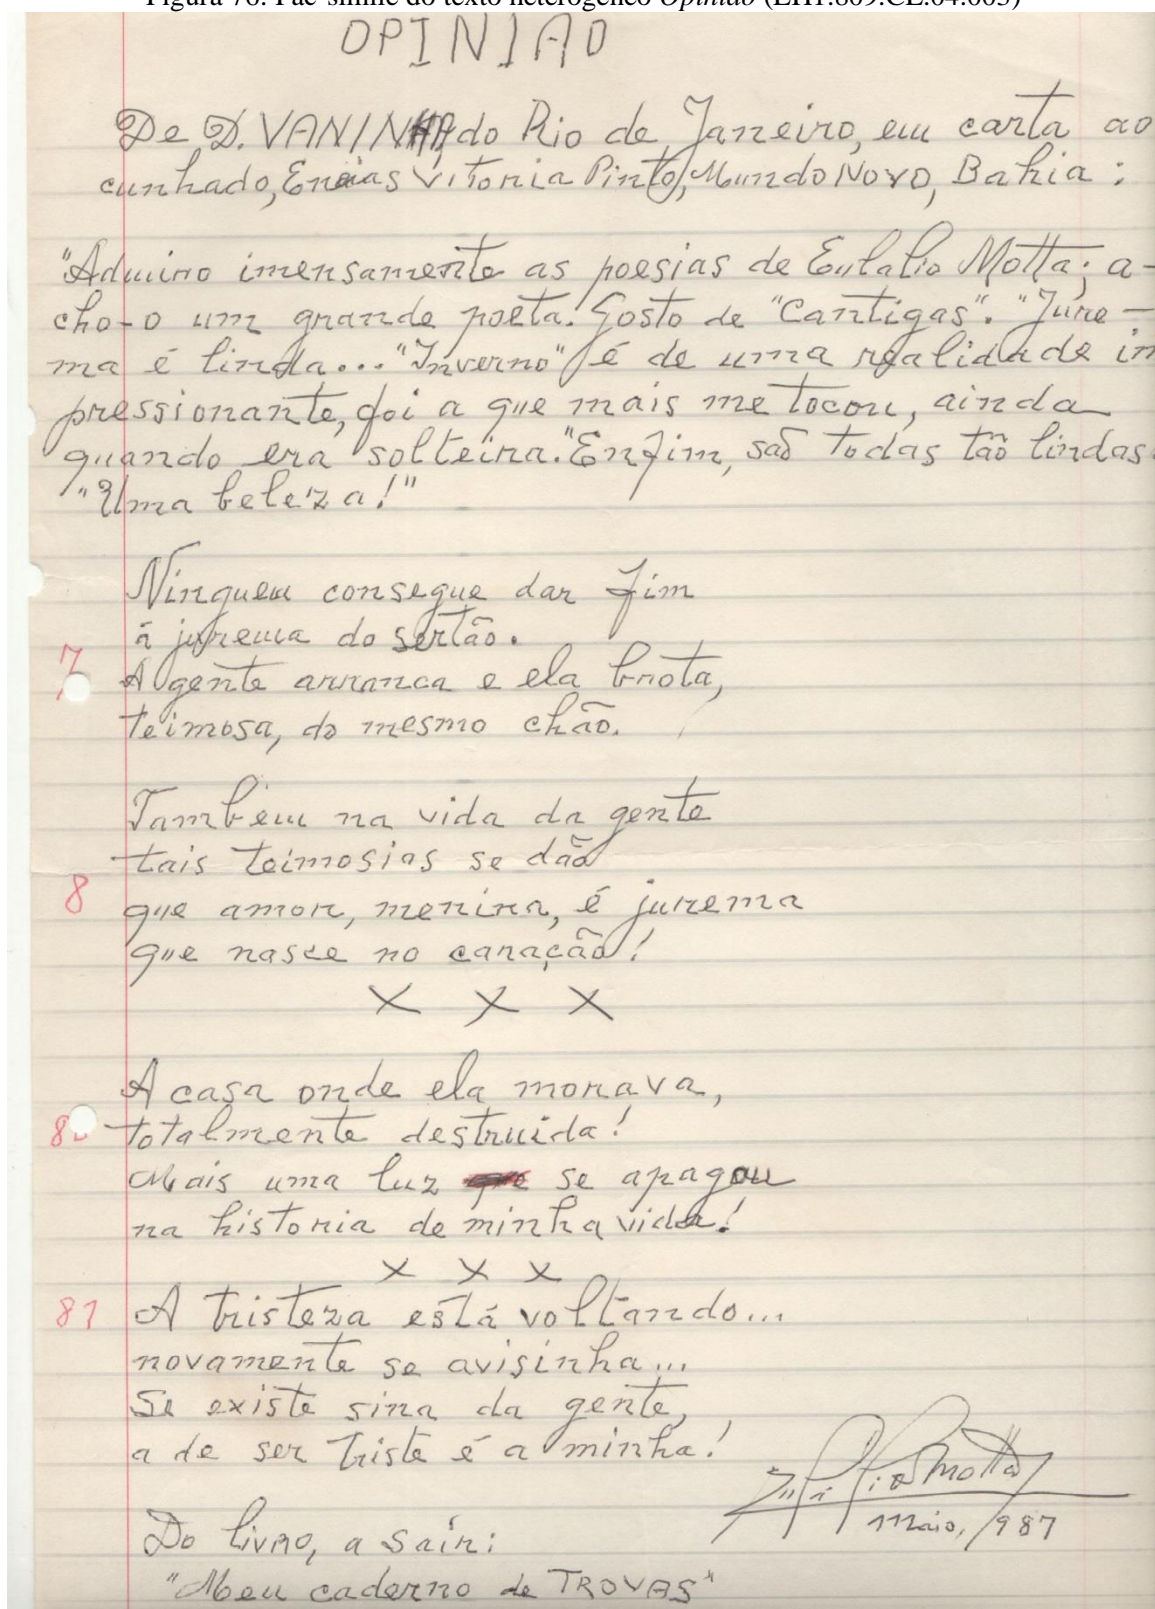 Figura 78: Fac-símile do texto heterogêneo Opinião (EH1.809.CL.04.003)
OPINIAO
De D. VANINHA, do Rio de Janeiro, em carta ao
cunhado, Eneias Vitoria Pinto, Mundo Novo, Bahia:
"Admiro imensamente as poesias de Eulalio Motta; a-
cho-o um grande poeta. Gosto de "Cantigas". "Jure-
ma é linda... "Inverno" é de uma realidade im
pressionante, foi a que mais me tocou, ainda
quando era solteira." Enfim, são todas tão lindas.
"Uma beleza!"
Ninguem consegue dar fim
á jurema do sertão.
7 A gente arranca e ela brota,
teimosa, do mesmo chão.
Tambem na vida da gente
tais teimosias se dão
8 que amor, menina, é jurema
que nasce no caração!
X X X
A casa onde ela morava,
80 totalmente destruida!
Mais uma luz que se apagou
na historia de minha vida!
X X X
81 A tristeza está voltando...
novamente se avisinha...
Se existe sina da gente,
a de ser triste é a minha!
Eulalio Motta
Maio, 1987
Do livro, a sair:
"Meu caderno de TROVAS"